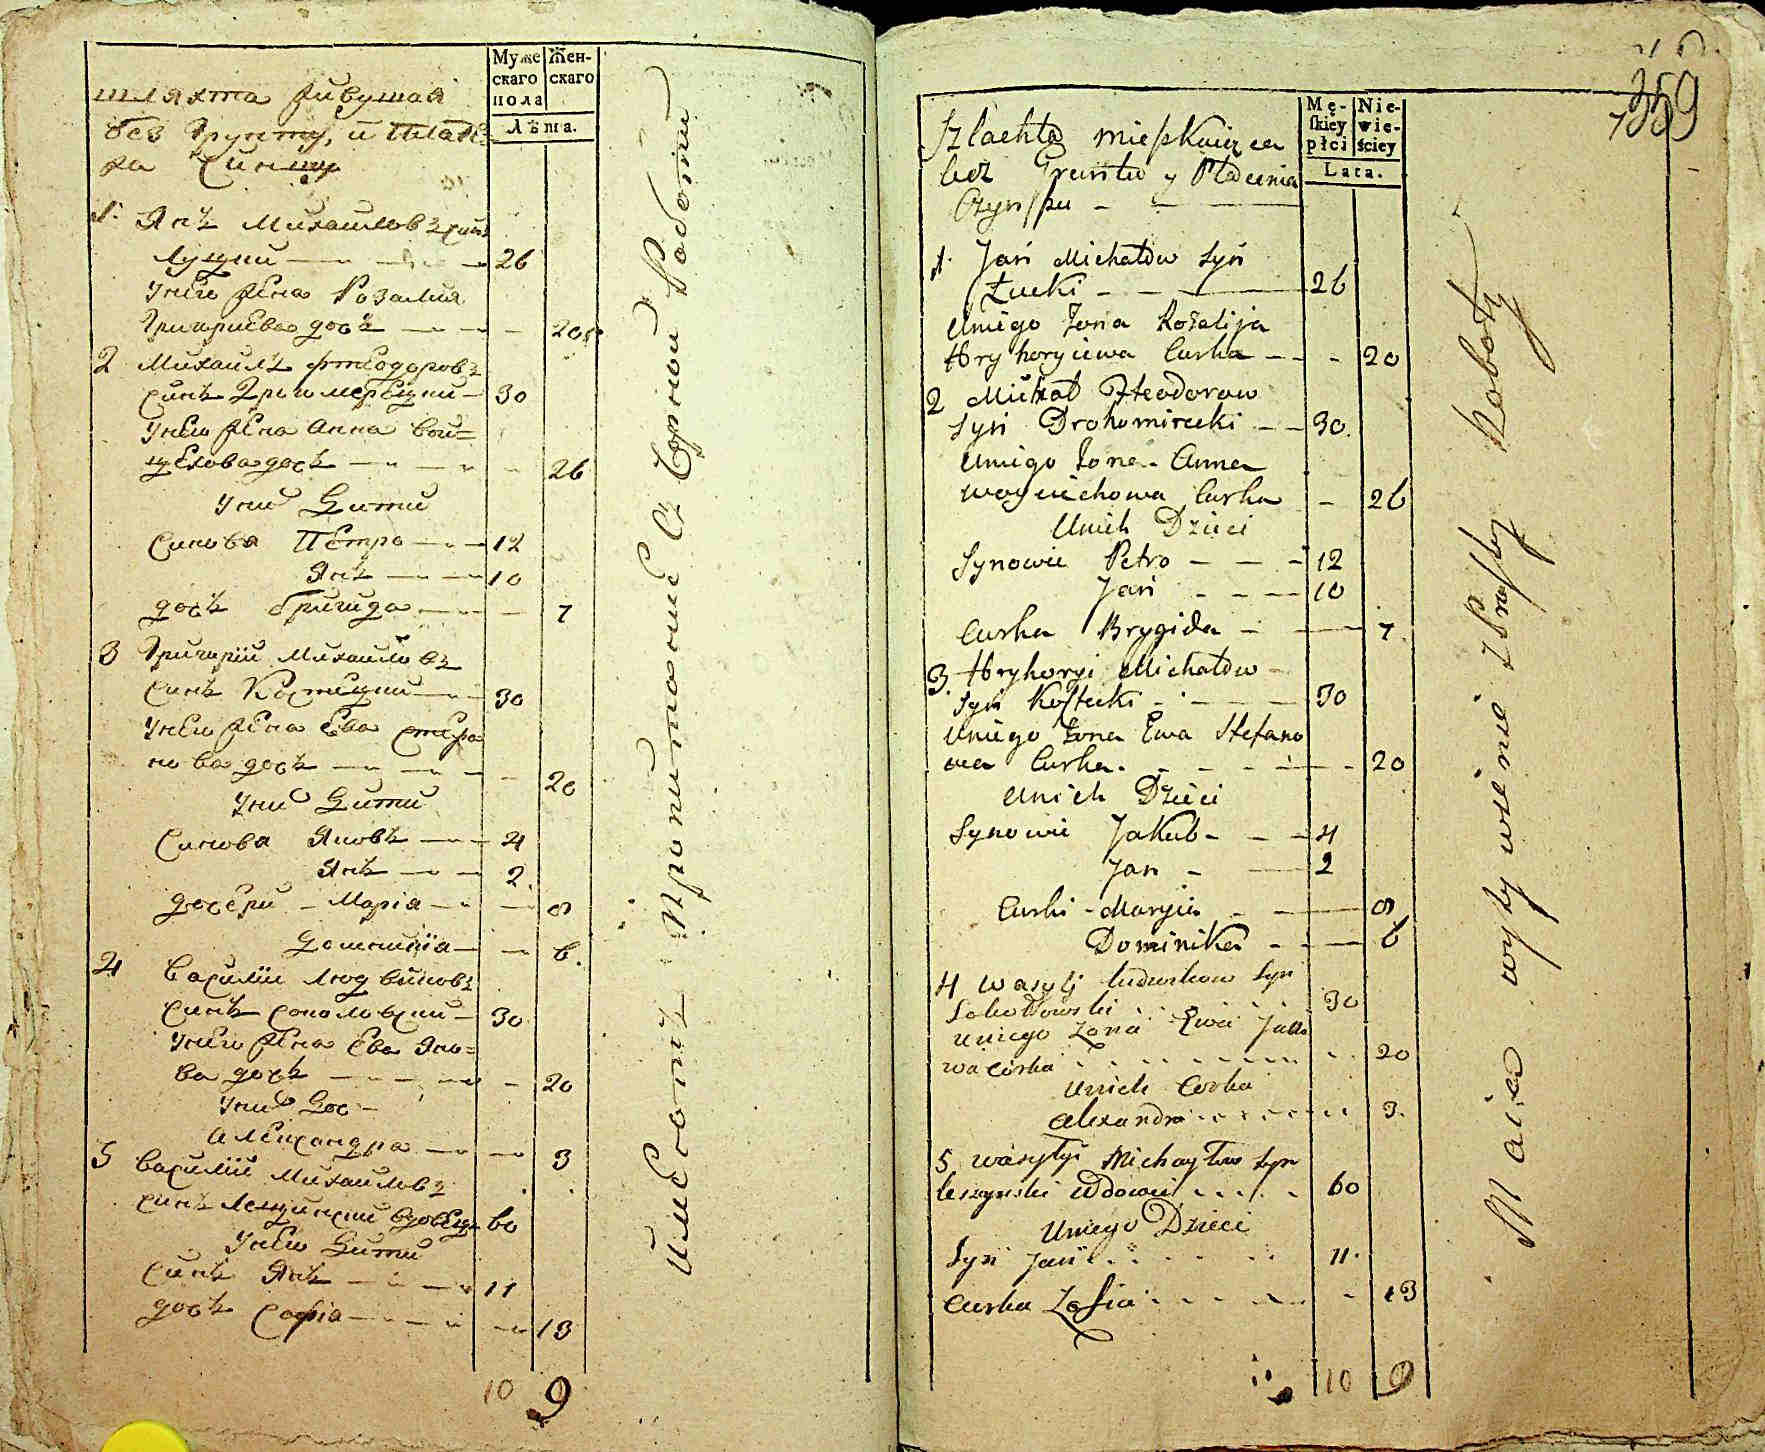 Муже
скаго
пола
Жен-
скаго
Лѣта.
шляхта живущая
без Грунту, и Плате
жа Чиншу
1. Янъ Михаиловъ синъ
Луцкий 26
У него жена Розалия
Григориева дочь 20
2 Михаилъ Фтеодоровъ
синъ Дрогомерецкий 30
У него жена Анна Вои=
цехова дочь 26
У них Дети
Синова Петро 12
Янъ 10
дочь Бригида 7
3 Григорий Михаиловъ
синъ Костецкий 30
У него жена Ева Стефа
нова дочь 20
У них Дети
Синова Яковъ 4
Янъ 2
дочери Марiа 8
Доминiка 6.
4 Василий Людвиковъ
синъ Соколовский 30
У него жена Ева Яко=
ва дочь 20
У них Доч
Александра 3
5 Василий Михаиловъ
синъ Лещинский вдовецъ 60
У него Дети
Синъ Янъ 11
дочь Софiа 13
10 9
Имеютъ Пропитание Съ Черной Роботи
359
Mę-
skiey
płci
Nie-
wie-
ściey
Lata.
Szlachta mieszkaiąca
bez Gruntu y Płacenia
Czynszu
1. Jan Michałow Syn
Łucki 26
U niego Żona Rozalija
Hryhoryiewa Curka 20
2 Michał Fteodorow
Syn Drohomirecki 30.
U niego Żona Anna
Woyciechowa Curka 26
U nich Dzieci
Synowie Petro 12
Jan 10
Curka Brygida 7.
3. Hryhoryi Michałow
Syn Kostecki 30
U niego Żona Ewa Stefano
wa Curka. 20
U nich Dzieci
Synowie Jakub 4
Jan 2
Curki Maryia 8
Dominika 6
4 Wasyli Ludwikow Syn
Sokołowski 30
U niego Żona Ewa Jako
wa Córka 20
U nich Corka
Alexandra 3.
5 Wasylyi Michayłow Syn
Leszynski Wdowiec 60
U niego Dzieci
Syn Jan 11.
Curka Zofia 13
10 9
Maią wyżywienie z Prosty Roboty